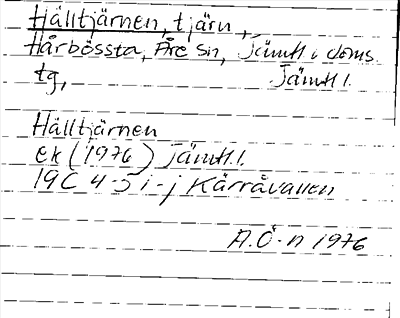 Hälltjärnen, tjärn,
Hårbössta, Åre sn, Jämtl:s doms.
tg, Jämtl.
Hälltjärnen
ek (1976) Jämtl.
19C 4-5 i-j Kärråvallen
A.Ö-n 1976